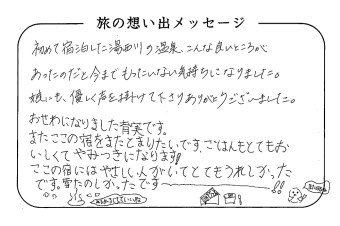 旅の想い出メッセージ
初めて宿泊した湯西川の温泉、こんな良いところが
あったのだと今までもったいない気持ちになりました。
娘にも、優しく声を掛けて下さりありがとうございました。
おせわになりました育実です。
またここの宿をまたとまりたいです。ごはんもとてもお
いしくてやみつきになります!
ここの宿にはやさしい人がいてとてもうれしかった
です。またのしかったです〜!!